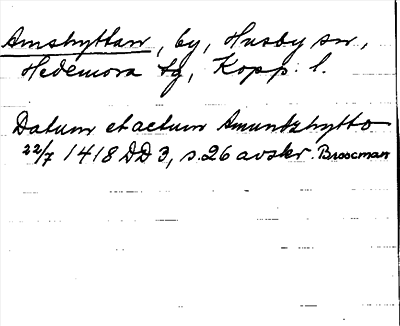 Amshyttan, by, Husby sn,
Hedemora tg, Kopp. l.
Datum et actum Amuntzhytto
22/7 1418 DD 3, s. 26 avskr. Broocman